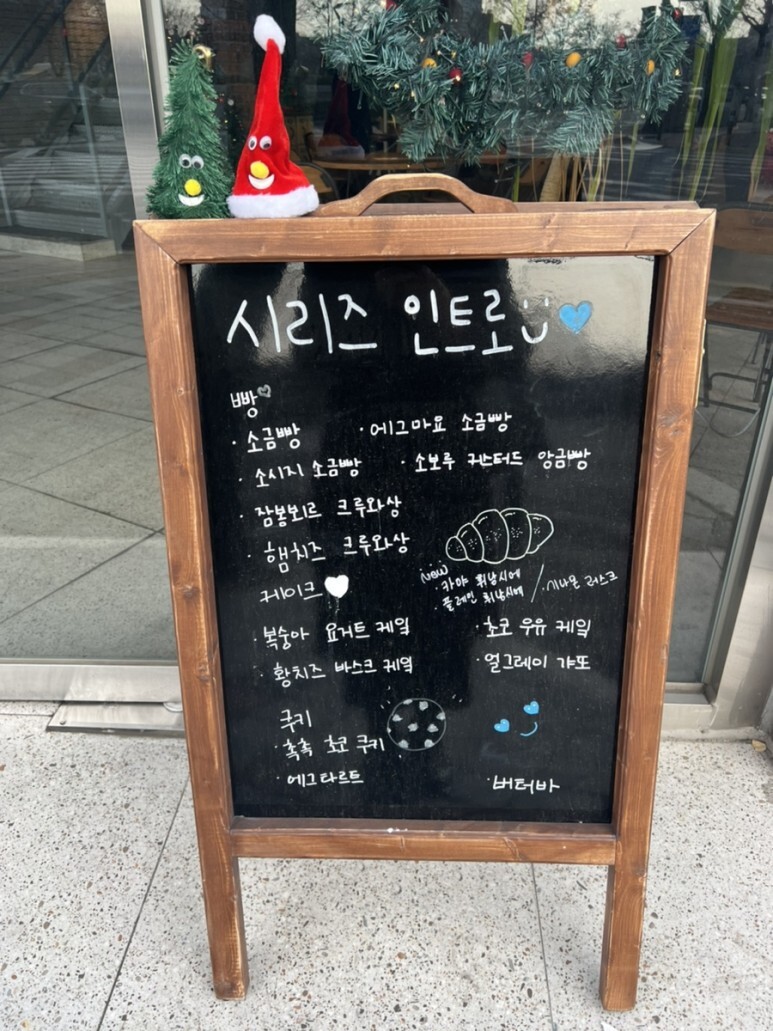 시리즈 인트로
빵
· 소금빵 · 에그마요 소금빵
· 소시지 소금빵 · 소보루 커스터드 앙금빵
· 잠봉뵈르 크루와상
· 햄치즈 크루와상
케이크
new
· 카야 휘낭시에 / · 시나몬 러스크
플레인 휘낭시에
· 복숭아 요거트 케잌 · 초코 우유 케잌
· 황치즈 바스크 케잌 · 얼그레이 갸또
쿠키
· 촉촉 초코 쿠키
· 에그타르트 · 버터바